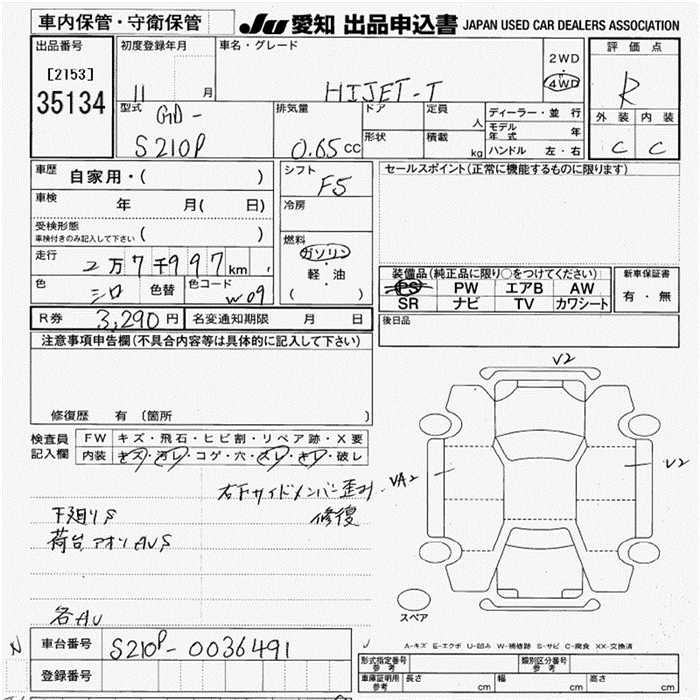 車内保管・守衛保管
JU 愛知 出品申込書 JAPAN USED CAR DEALERS ASSOCIATION
出品番号
[2153]
35134
初度登録年月
11 月
車名・グレード
HIJET-T
2WD
・
4WD
評価点
R
外装 内装
C C
型式
GD-
S210P
排気量
0.65 cc
ドア
形状
定員
人
積載
kg
ディーラー・並行
モデル年式 年
ハンドル 左・右
車歴
自家用・( )
車検
年 月( 日)
受検形態
車検付きのみ記入して下さい ( )
走行
2万7千997km
色
シロ
色替
色コード
W09
シフト
F5
冷房
燃料
ガソリン
・
軽油
( )
セールスポイント(正常に機能するものに限ります)
装備品(純正品に限り○をつけてください)
PS PW エアB AW
SR ナビ TV カワシート
新車保証書
有・無
R券 3,290円
名変通知期限 月 日
後日品
注意事項申告欄(不具合内容等は具体的に記入して下さい)
修復歴 有 〔箇所 〕
検査員
記入欄
FW キズ・飛石・ヒビ割・リペア跡・X要
内装 キズ・汚レ・コゲ・穴・スレ・キレ・破レ
右下サイドメンバー歪み
修復
下廻りS
荷台アオリAUS
各AU
V2
VA2
V2
スペア
N
車台番号
S210P-0036491
登録番号
A-キズ E-エクボ U-凹み W-補修跡 S-サビ C-腐食 XX-交換済
形式指定番号
参考
類別区分番号
参考
車庫証明用
参考
長さ cm
幅 cm
高さ cm